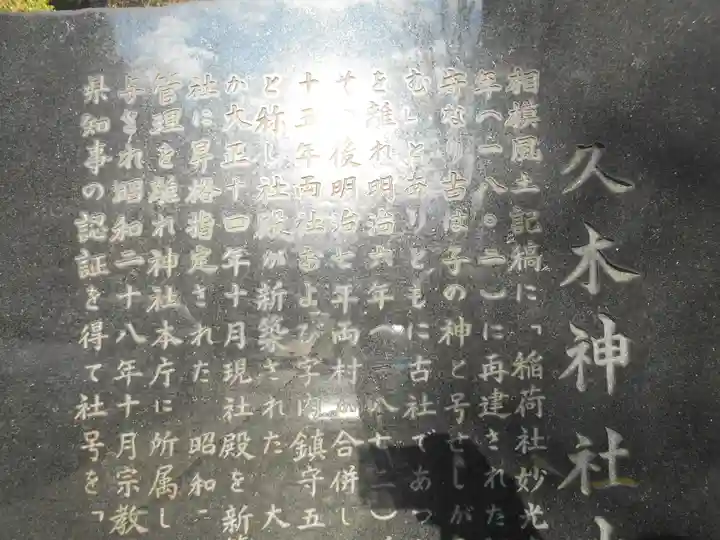 久木神社
相模風土記稿に「稲荷社妙光
年(一八〇二)に再建された
守なり古は子の神と号せしが
むしとありともに古社であつ
を離れ明治六年(一八七二)
その後明治七年両村が合併し
十五年両社および字内鎮守五
と称し社殿が新築された 大
が大正十四年十月現社殿を新築
社に昇格指定された 昭和二
管理を離れ神社本庁に所属し
与され昭和二十八年十月宗教
県知事の認証を得て社号を「